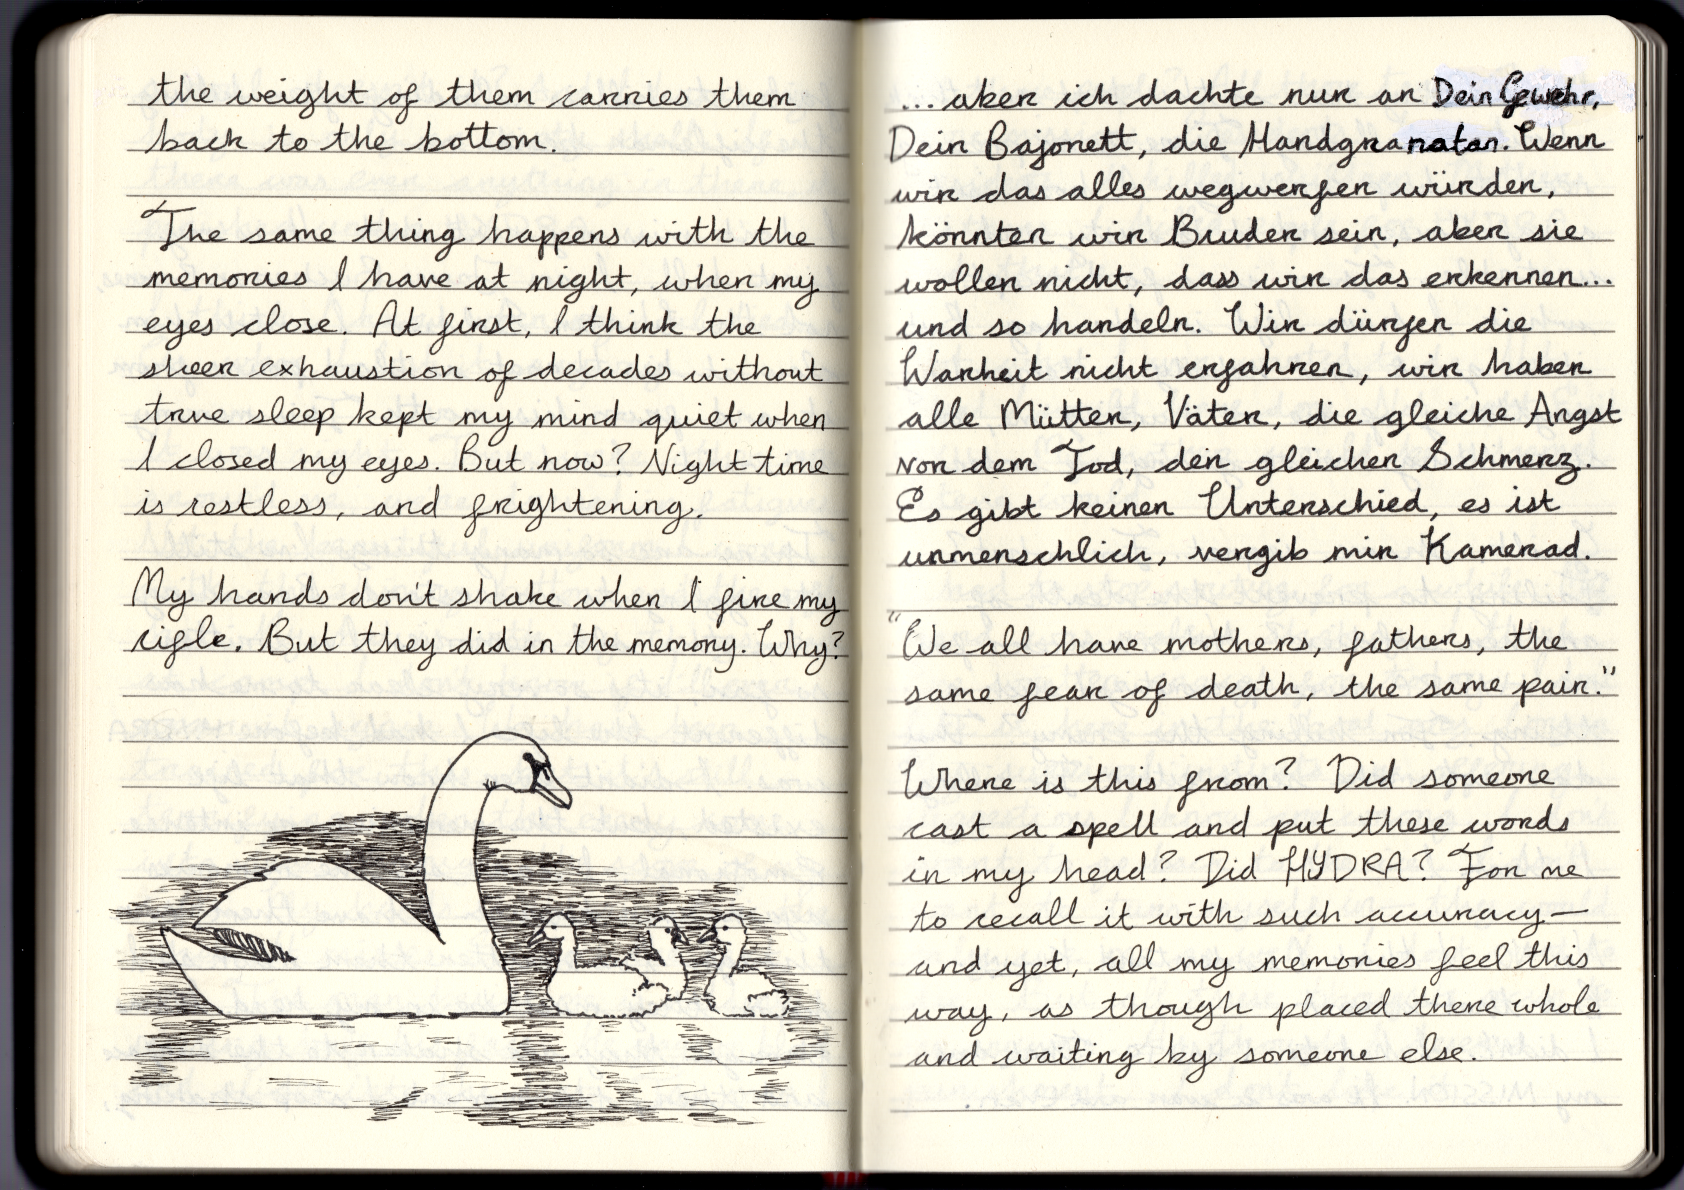 the weight of them carries them
back to the bottom.
The same thing happens with the
memories I have at night, when my
eyes close. At first, I think the
sheer exhaustion of decades without
true sleep kept my mind quiet when
I closed my eyes. But now? Night time
is restless, and frightening.
My hands don't shake when I fire my
rifle. But they did in the memory. Why?
...aber ich dachte nur an Dein Gewehr,
Dein Bajonett, die Handgranatan. Wenn
wir das alles wegwerfen würden,
könnten wir Bruder sein, aber sie
wollen nicht, dass wir das erkennen...
und so handeln. Wir dürfen die
Warheit nicht erfahren, wir haben
alle Mütter, Väter, die gleiche Angst
vor dem Tod, den gleichen Schmerz.
Es gibt keinen Unterschied, es ist
unmenschlich, vergib mir Kamerad.
"We all have mothers, fathers, the
same fear of death, the same pain."
Where is this from? Did someone
cast a spell and put these words
in my head? Did HYDRA? For me
to recall it with such accuracy—
and yet, all my memories feel this
way, as though placed there whole
and waiting by someone else.